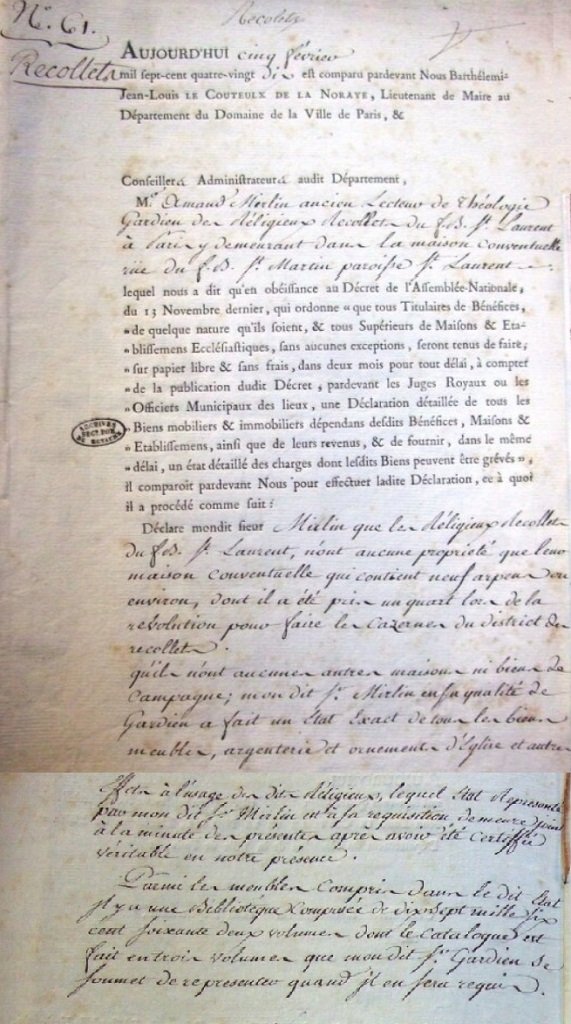 Recolets
N.° 61.
Recollets
AUJOURD'HUI cinq février
mil sept-cent quatre-vingt dix est comparu pardevant Nous Barthélemi-
Jean-Louis LE COUTEULX DE LA NORAYE, Lieutenant de Maire au
Département du Domaine de la Ville de Paris, &
Conseillers Administrateurs audit Département,
M.r Amand Mirlin ancien Lecteur de Théologie
Gardien des Réligieux Recollets du f.B. St. Laurent
à Paris y demeurant dans la maison conventuelle
rüe du f.B. St. Martin paroisse St. Laurent
lequel nous a dit qu'en obéissance au Décret de l'Assemblée-Nationale,
du 13 Novembre dernier, qui ordonne « que tous Titulaires de Bénéfices,
» de quelque nature qu'ils soient, & tous Supérieurs de Maisons & Eta-
» blissemens Ecclésiastiques, sans aucunes exceptions, seront tenus de faire,
» sur papier libre & sans frais, dans deux mois pour tout délai, à compter
» de la publication dudit Décret, pardevant les Juges Royaux ou les
» Officiers Municipaux des lieux, une Déclaration détaillée de tous les
» Biens mobiliers & immobiliers dépendans desdits Bénéfices, Maisons &
» Etablissemens, ainsi que de leurs revenus, & de fournir, dans le même
» délai, un état détaillé des charges dont lesdits Biens peuvent être grévés »,
il comparoît pardevant Nous pour effectuer ladite Déclaration, ce à quoi
il a procédé comme suit :
ARCHIVES
SECT. DOM.
DU ROYAUME
Déclare mondit sieur Mirlin que les Réligieux Recollets
du f.B. St. Laurent, n'ont aucune propriété que leur
maison conventuelle qui contient neuf arpens ou
environ, dont il a été pris un quart lors de la
révolution pour faire les Cazernes du district des
recollets.
qu'ils n'ont aucunes autres maisons ni biens de
Campagne; mon dit Sr. Mirlin en sa qualité de
Gardien a fait un Etat Exact de tous les biens
meubles, argenterie et ornemens d'Eglise et autres
Effets à l'usage des dits Réligieux, lequel Etat Représenté
par mon dit Sr. Mirlin est à sa requisition demeuré joint
à la minute des présentes après avoir été certiffié
véritable en notre présence.
Parmi les meubles Compris dans le dit Etat
jl y a une Bibliotèque Composée de dix Sept mille six
cent soixante deux volumes dont le Catalogue est
fait en trois volumes que mon dit Sr. Gardien se
soumet de representer quand jl en sera requis.